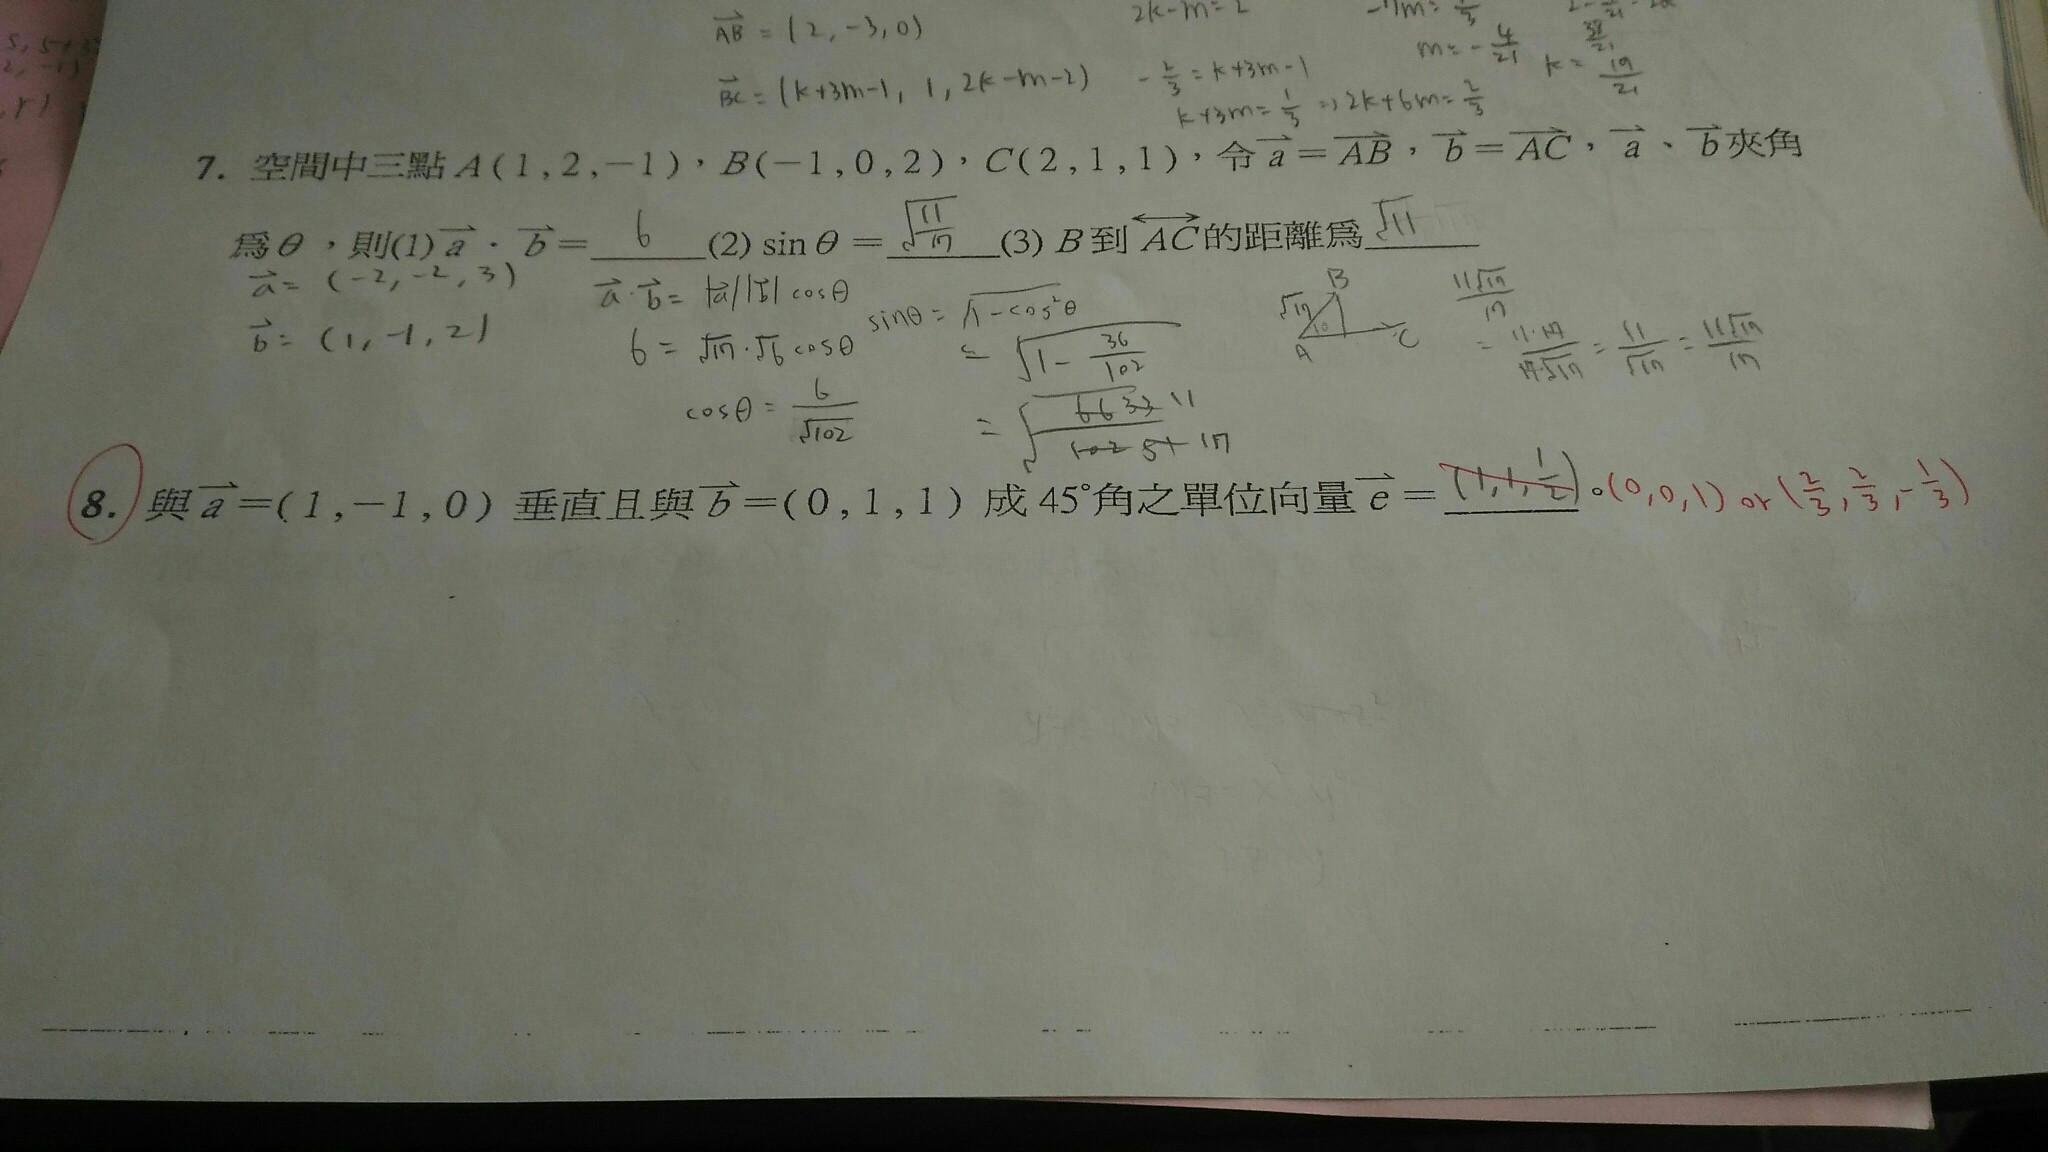 AB = (2, -3, 0)
2k-m=2
BC = (k+3m-1, 1, 2k-m-2)
-2/3 = k+3m-1
k+3m = 1/3 => 2k+6m = 2/3
m = -4/21
38/21
k = 19/21
7. 空間中三點 A(1,2,−1),B(−1,0,2),C(2,1,1),令 a = AB,b = AC,a、b 夾角
為θ,則(1) a · b = 6 (2) sin θ = √(11/17) (3) B 到 AC 的距離為 √11
a = (-2, -2, 3)
b = (1, -1, 2)
a · b = |a||b| cosθ
6 = √17·√6 cosθ
cosθ = 6/√102
sinθ = √(1-cos²θ)
= √(1 - 36/102)
= √(66 33 11 / 102 51 17)
B
√17
θ
A
C
11√17/17
= 11·17/17·√17 = 11/√17 = 11√17/17
8. 與 a =(1,−1,0) 垂直且與 b =(0,1,1) 成 45°角之單位向量 e = (1,1,1/2)。(0,0,1) or (2/3, 2/3, -1/3)